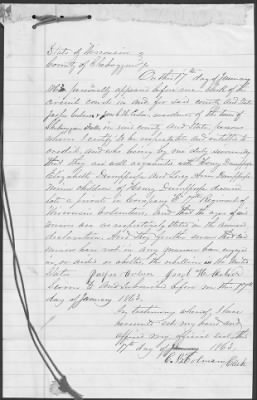 State of Wisconsin
County of Sheboygan
On this 17th day of January
1863 personally appeared before me Clerk of the
Circuit court in and for said county and State
residents of the town of
Sheboygan Falls in said county and State, persons
whom I certify to be respectable and entitled to
credit, and who being by me duly sworn say
that they are well acquainted with Henry
Elizabeth and Lucy Ann
minor children of Henry deceased
late a private in Company Regiment of
Wisconsin Volunteers, and that the ages of said
minors are as respectively stated in the annexed
declaration. And they further swear that said
minors have not in any manner been engaged
in, or aided or abetted, the rebellion in the United
States
Sworn to and Subscribed before me this 17th
day of January 1863.
In testimony whereof I have
hereunto set my hand and
affixed my official seal, this
17th day of January 1863.
Clerk